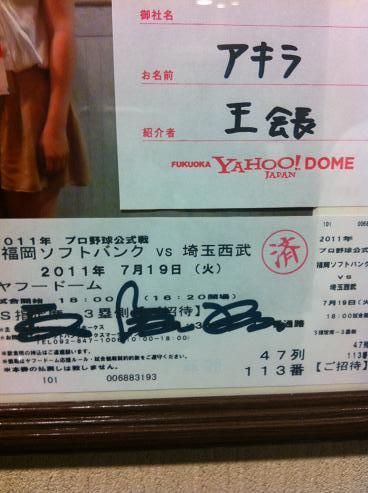 御社名
お名前
アキラ
紹介者
王会長
FUKUOKA YAHOO! JAPAN DOME
011年 プロ野球公式戦
福岡ソフトバンク VS 埼玉西武
済
2011年 7月19日(火)
ヤフードーム
試合開始 18:00 (16:20開場)
S指定席・3塁側【ご招待】
通路
TEL092-847-1006(10:00-18:00)
※本券の払戻しは致しません。
47列
113番
101 006883193
101 0068
2011年
プロ野球公式戦
福岡ソフトバンク
VS
埼玉西武
7月19日(火
S指定席・3塁側
47列
113番
【ご招待】